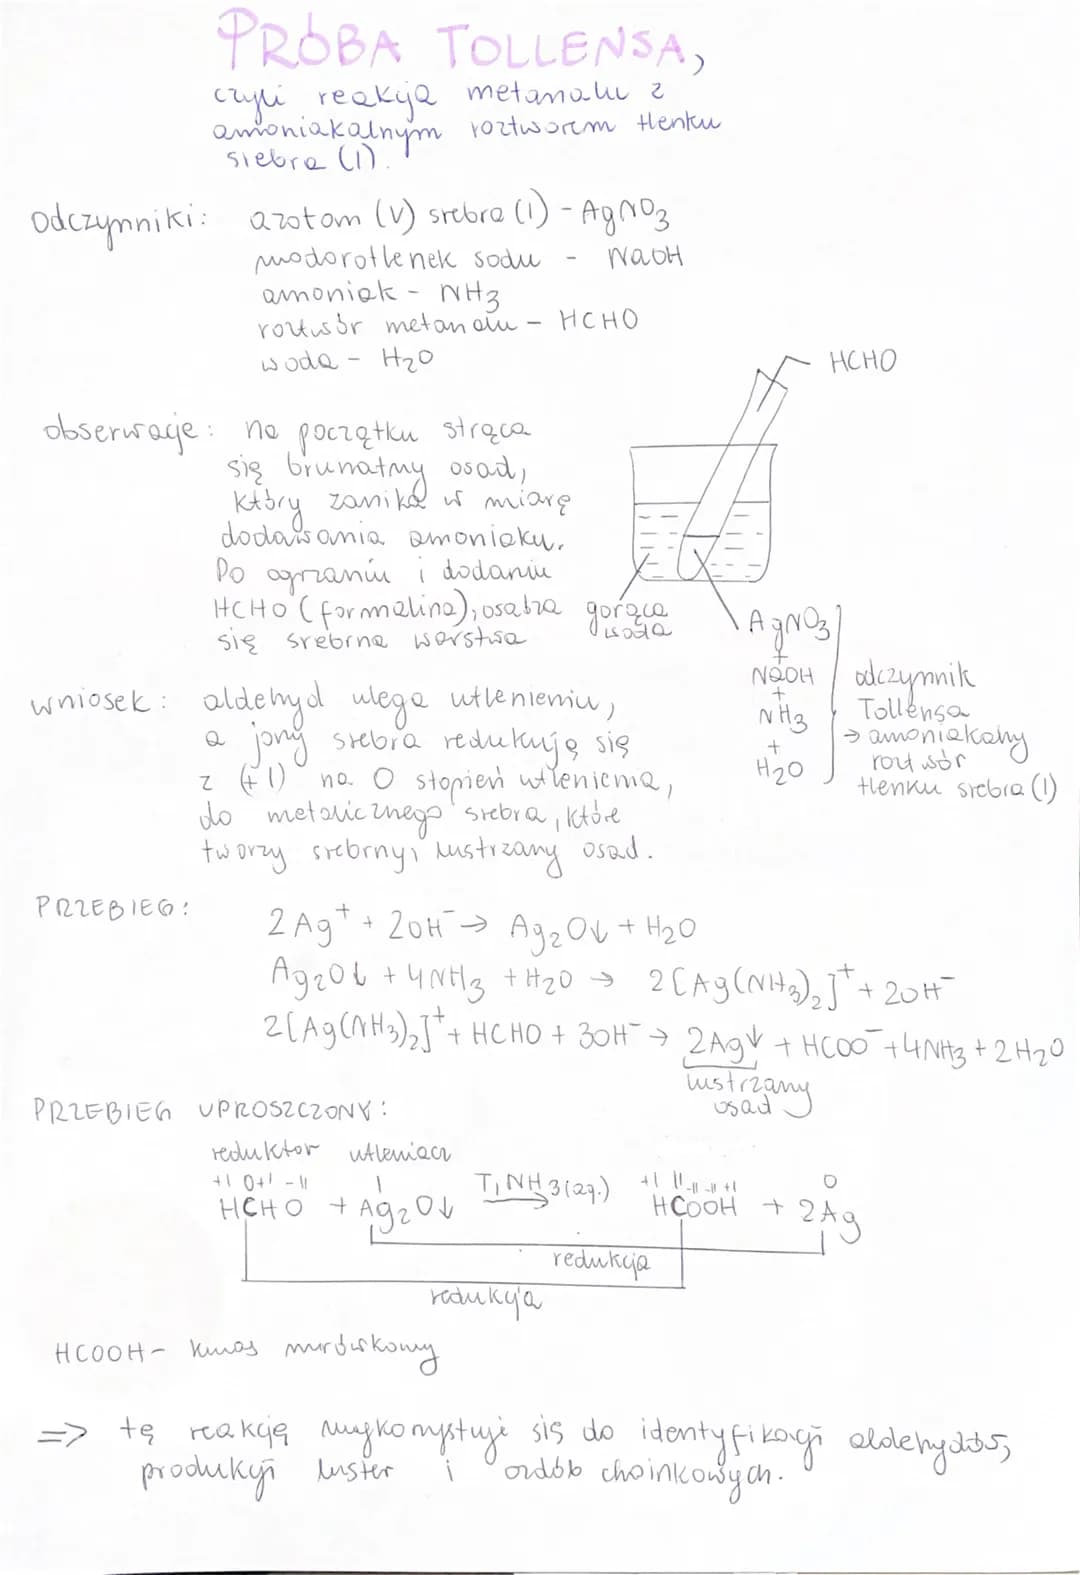 PRÓBA TOLLENSA,
czyli reakcja metanalu z
amoniakalnym roztworem tlenku
srebra (I).
Odczynniki: azotan (V) srebra (I) - AgNO3
wodorotlenek sodu - NaOH
amoniak - NH3
roztwór metanalu - HCHO
woda - H2O
HCHO
obserwacje: na początku strąca
się brunatny osad,
który zanika w miarę
dodawania amoniaku.
Po ogrzaniu i dodaniu
HCHO (formalina), osadza
się srebrna warstwa
gorąca
woda
AgNO3
+
NaOH
+
NH3
+
H2O
odczynnik
Tollensa
→ amoniakalny
roztwór
tlenku srebra (I)
wniosek: aldehyd ulega utlenieniu,
a jony srebra redukują się
z (+1) na 0 stopień utlenienia,
do metalicznego srebra, które
tworzy srebrny, lustrzany osad.
PRZEBIEG:
2Ag⁺ + 2OH⁻ → Ag2O↓ + H2O
Ag2O↓ + 4NH3 + H2O → 2[Ag(NH3)2]⁺ + 2OH⁻
2[Ag(NH3)2]⁺ + HCHO + 3OH⁻ → 2Ag↓ + HCOO⁻ + 4NH3 + 2H2O
lustrzany
osad
PRZEBIEG UPROSZCZONY:
reduktor utleniacz
+I 0 +I -II I +I II -II -II +I 0
HCHO + Ag2O↓ T, NH3(aq.) → HCOOH + 2Ag
redukcja
redukcja
HCOOH - kwas mrówkowy
=> tę reakcję wykorzystuje się do identyfikacji aldehydów,
produkcji luster i ozdób choinkowych.